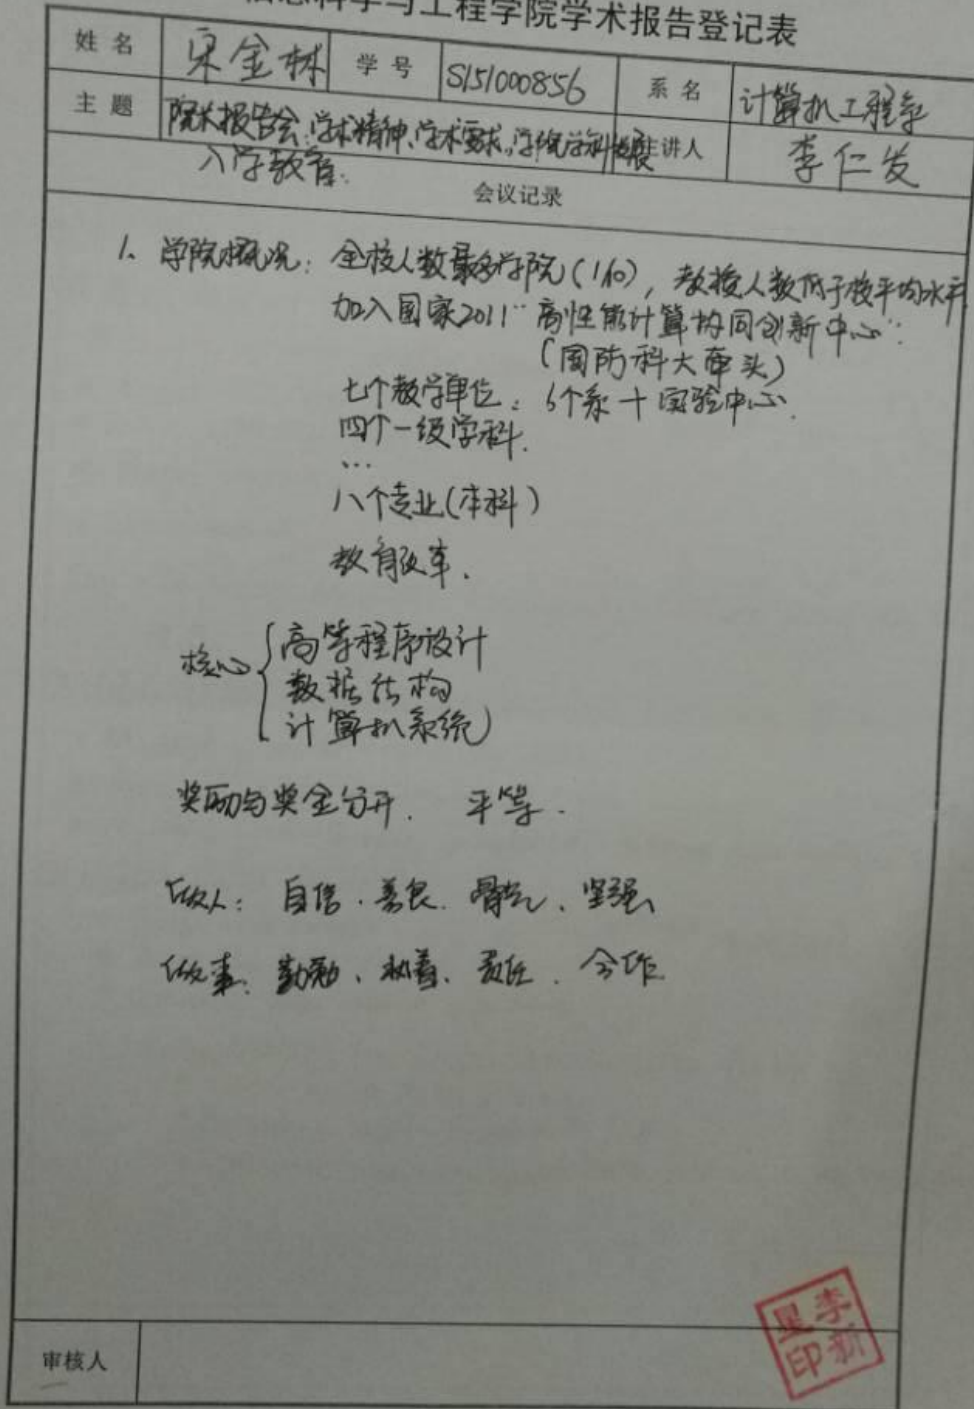 信息科学与工程学院学术报告登记表
姓名 宋金林 学号 S151000856 系名 计算机工程系
主题 院长报告会:学术精神、学术要求、学院学科发展 主讲人 李仁发
入学教育.
会议记录
1. 学院概况: 全校人数最多学院(1/10), 教授人数低于校平均水平
加入国家2011“高性能计算协同创新中心”.
(国防科大牵头)
七个教学单位: 6个系+实验中心.
四个一级学科.
...
八个专业(本科)
教育改革.
核心{高等程序设计
数据结构
计算机系统
奖励与奖金分开. 平等.
做人: 自信.善良.骨气、坚强
做事: 勤勉、执着、责任.合作
审核人
李新星印